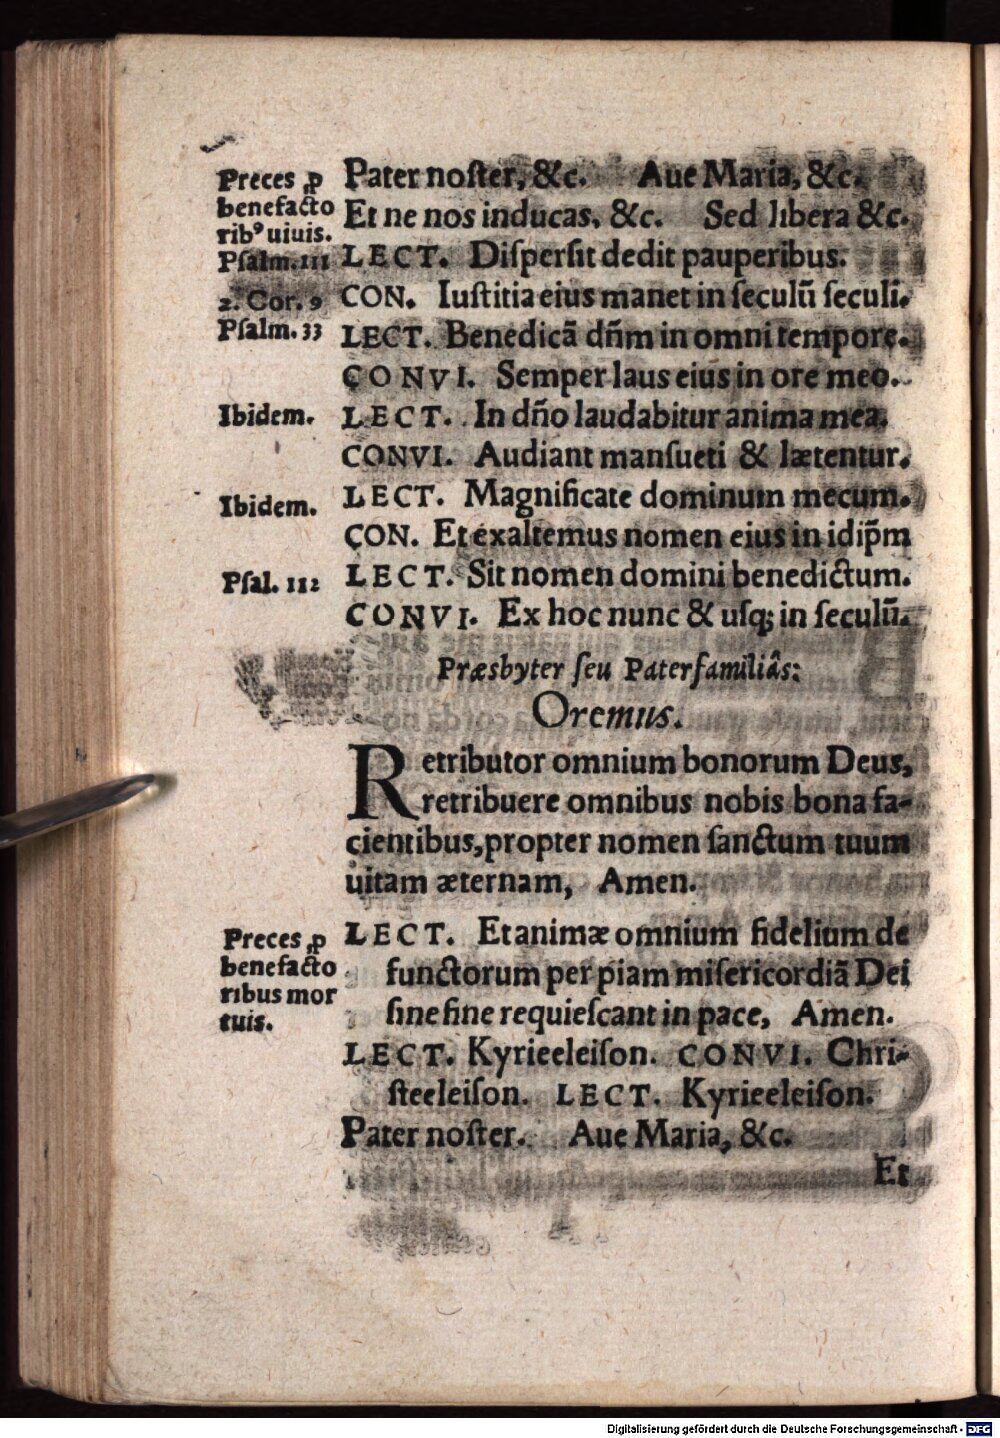 Preces ꝓ
benefacto
ribꝰ uiuis.
Psalm.111
2. Cor. 9
Psalm. 33
Ibidem.
Ibidem.
Psal. 112
Pater noſter, &c. Aue Maria, &c.
Et ne nos inducas, &c. Sed libera &c.
LECT. Diſperſit dedit pauperibus.
CON. Iuſtitia eius manet in ſeculū ſeculi.
LECT. Benedicā dn̄m in omni tempore.
CONVI. Semper laus eius in ore meo.
LECT. In dn̄o laudabitur anima mea.
CONVI. Audiant manſueti & lætentur.
LECT. Magnificate dominum mecum.
CON. Et exaltemus nomen eius in idip̄m
LECT. Sit nomen domini benedictum.
CONVI. Ex hoc nunc & uſq; in ſeculū.
Præsbyter ſeu Paterfamiliâs:
Oremus.
Retributor omnium bonorum Deus,
retribuere omnibus nobis bona fa-
cientibus, propter nomen ſanctum tuum
uitam æternam, Amen.
Preces ꝓ
benefacto
ribus mor
tuis.
LECT. Et animæ omnium fidelium de
functorum per piam miſericordiā Dei
ſine fine requieſcant in pace, Amen.
LECT. Kyrieeleiſon. CONVI. Chri-
ſteeleiſon. LECT. Kyrieeleiſon.
Pater noſter. Aue Maria, &c.
Et
Digitalisierung gefördert durch die Deutsche Forschungsgemeinschaft - DFG